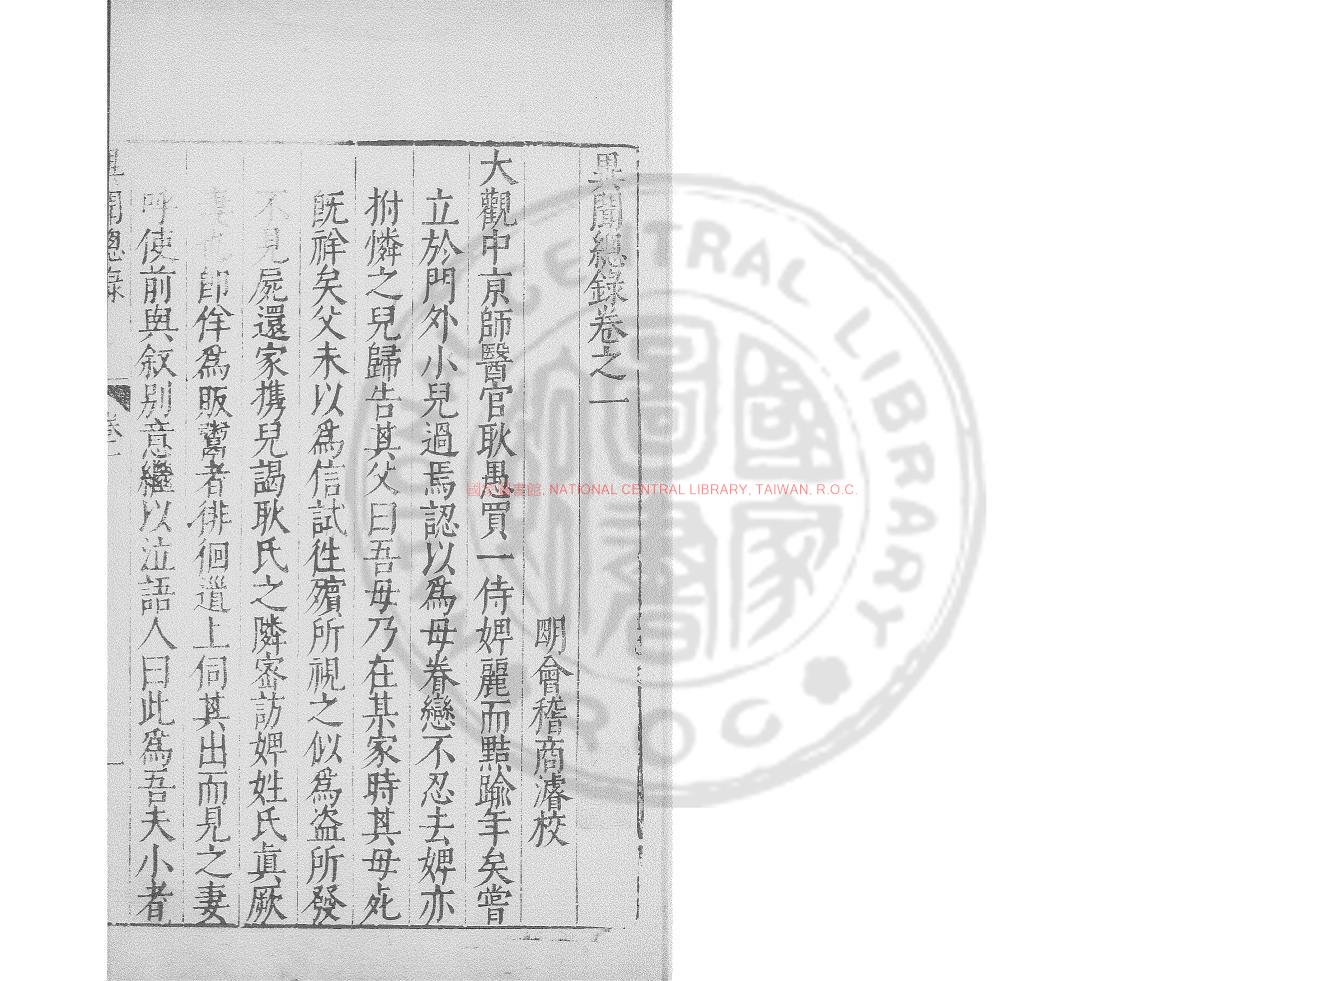 異聞總錄卷之一
明會稽商濬校
大觀中京師醫官耿愚買一侍婢麗而黠踰年矣嘗
立於門外小兒過焉認以爲母眷戀不忍去婢亦
拊憐之兒歸告其父曰吾母乃在某家時其母死
旣祥矣父未以爲信試徃殯所視之似爲盜所發
不見屍還家携兒謁耿氏之隣密訪婢姓氏眞厥
卽佯爲販鬻者徘徊道上伺其出而見之妻
呼使前與敘別意繼以泣語人曰此爲吾夫小者
異聞總錄 卷一 一
國家圖書館, NATIONAL CENTRAL LIBRARY, TAIWAN, R.O.C.
NATIONAL CENTRAL LIBRARY ROC
國家圖書館